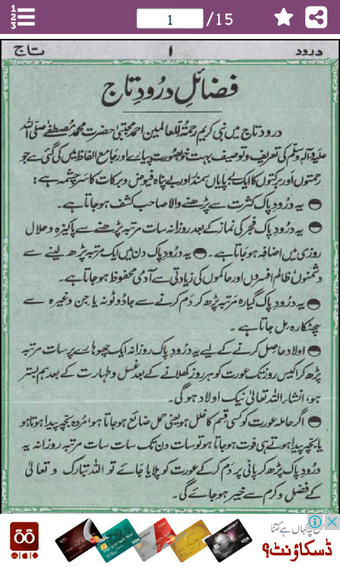 1 /15
درود ۱ تاج
فضائلِ درُودِ تاج
درود تاج میں نبی کریم رحمۃ للعالمین احمد مجتبیٰ حضرت محمد مصطفٰے صلی اللہ
علیہ وآلہ وسلم کی تعریف و توصیف بہت خوبصورت پیارے اور جامع الفاظ میں کی گئی ہے جو
رحمتوں اور برکتوں کا ایک بے پایاں سمندر اور بے پناہ فیوض و برکات کا سرچشمہ ہے:
یہ درُودِ پاک کثرت سے پڑھنے والا صاحبِ کشف ہو جاتا ہے۔
یہ درُود پاک فجر کی نماز کے بعد روزانہ سات مرتبہ پڑھنے سے پاکیزہ و حلال
روزی میں اضافہ ہو جاتا ہے۔ یہ درُودِ پاک دن میں ایک مرتبہ پڑھ لینے سے
دشمنوں ظالم افسروں اور حاکموں کی زیادتی سے آدمی محفوظ ہو جاتا ہے۔
یہ درُودِ پاک گیارہ مرتبہ پڑھ کر دَم کرنے سے جادُو ٹونہ یا جِن وغیرہ سے
چھٹکارہ مل جاتا ہے۔
اولاد حاصل کرنے کے لیے یہ درُودِ پاک روزانہ ایک چھوہارے پر سات مرتبہ
پڑھ کر اکیس روز تک عورت کو ہر روز کھلانے کے بعد غسل و طہارت کے بعد ہم بستر
ہو، انشاء اللہ تعالیٰ نیک اولاد ہو گی۔
اگر حاملہ عورت کو کسی قسم کا خلل ہو یعنی حمل ضائع ہو جاتا ہو، مُردہ بچہ پیدا ہوتا ہو
یا بچہ پیدا ہوتے ہی فوت ہو جاتا ہو تو سات دن تک سات سات مرتبہ روزانہ یہ
درُودِ پاک پڑھ کر پانی پر دَم کر کے عورت کو پلایا جائے تو اللہ تبارک و تعالیٰ
کے فضل و کرم سے خیر ہو جائے گی۔
کہاں ہے کتنا
ڈسکاؤنٹ؟